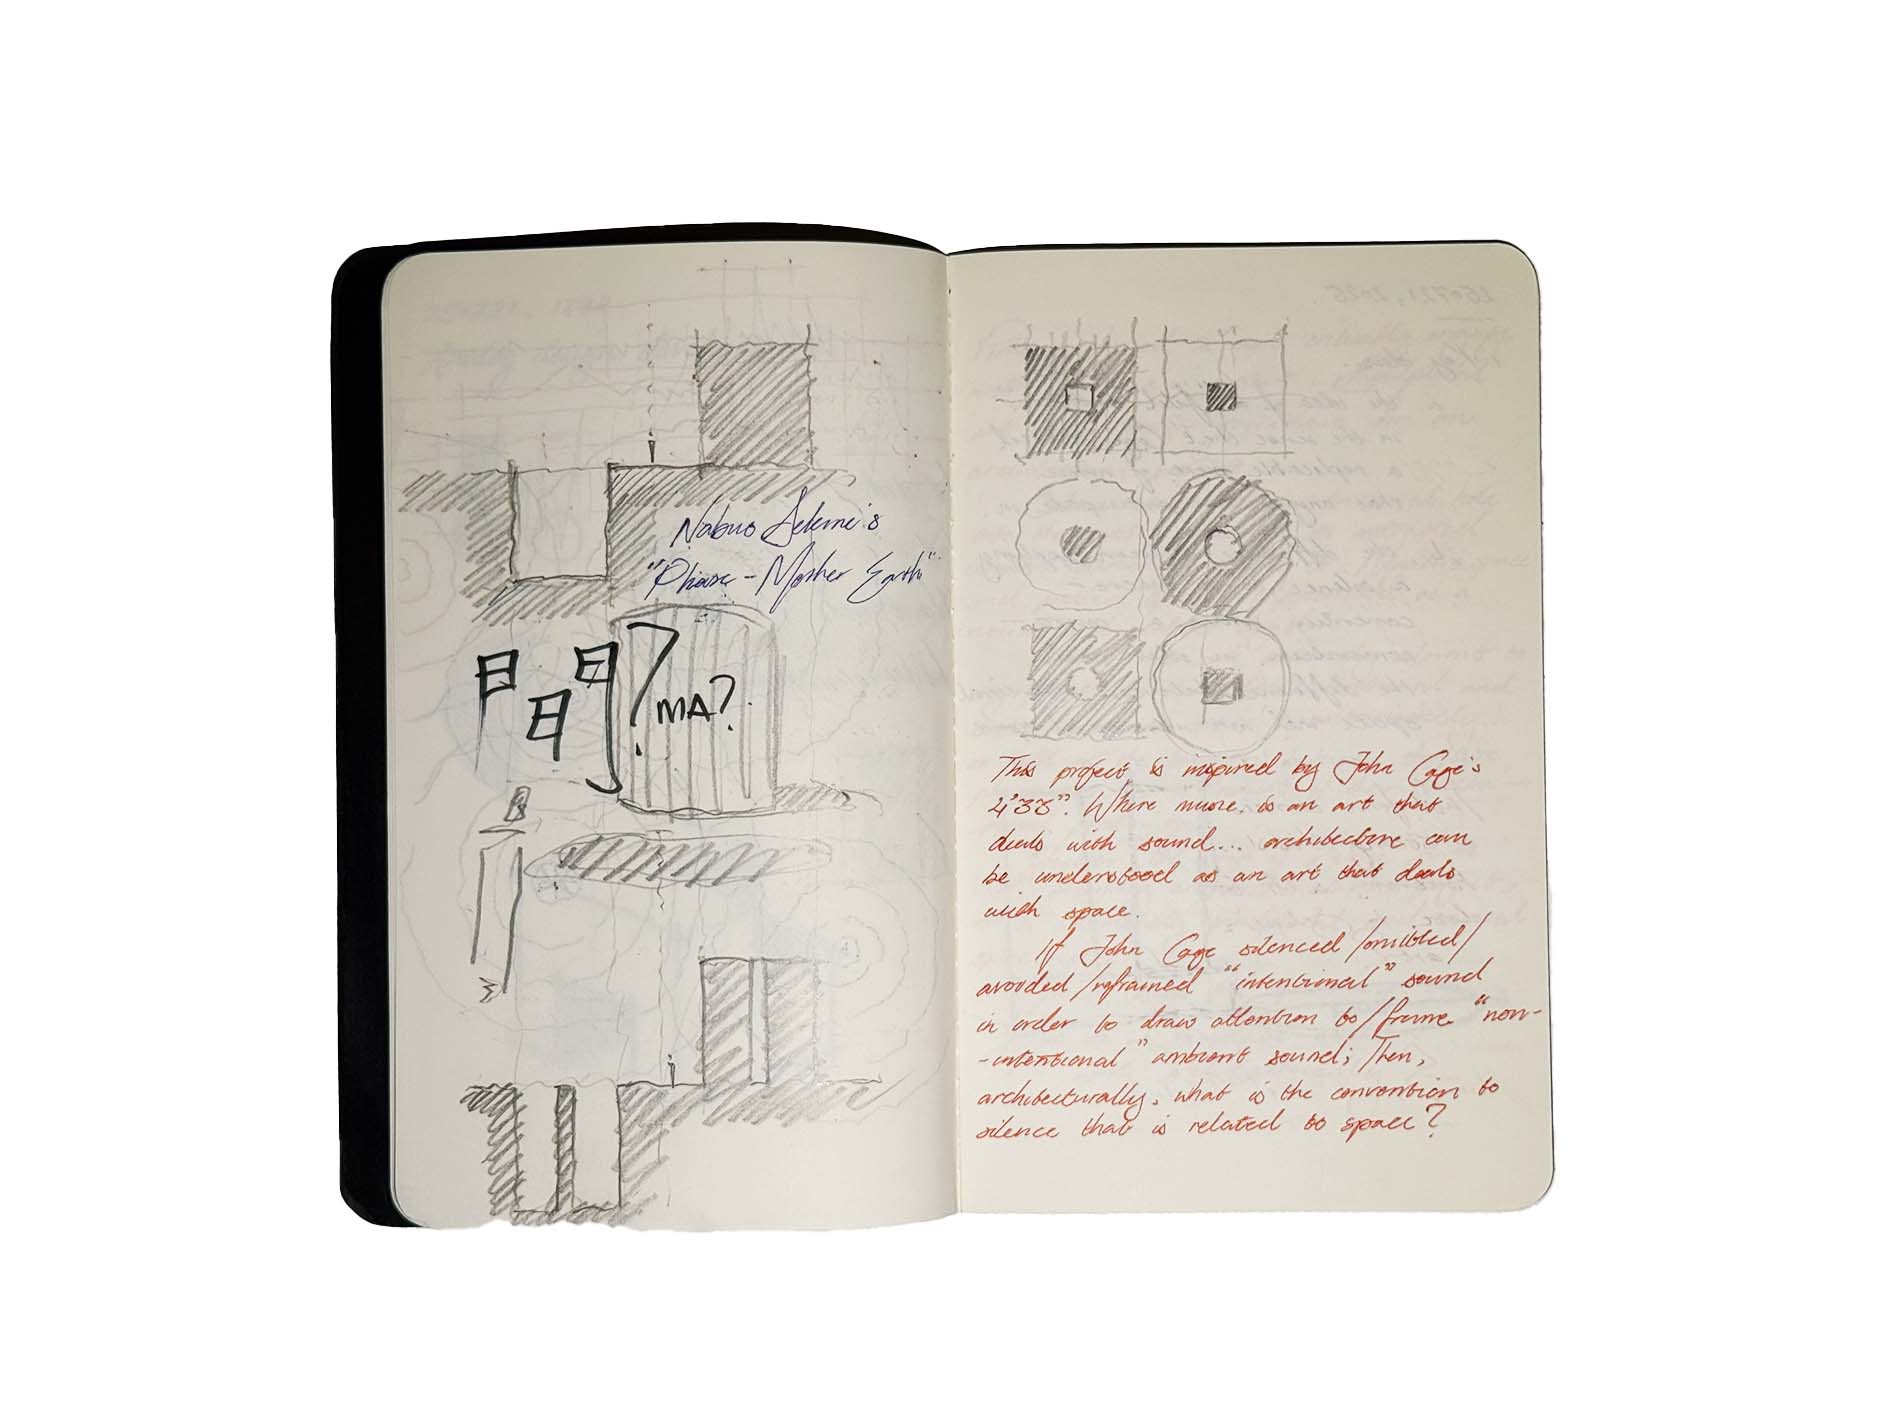 Nabuo Sekine's
"Phase - Mother Earth"
間?
MA?
This project is inspired by John Cage's
4'33". Where music is an art that
deals with sound... architecture can
be understood as an art that deals
with space.
If John Cage silenced/omitted/
avoided/refrained "intentional" sound
in order to draw attention to/frame "non-
-intentional" ambient sound; Then,
architecturally, what is the convention to
silence that is related to space?